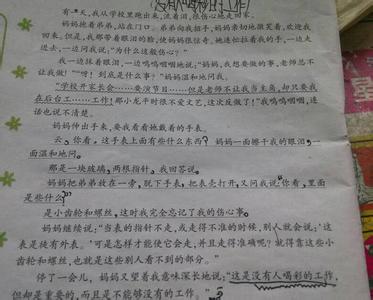 没有人喝彩的工作
有一天,我从学校里跑出来,流着泪,很伤心地走回家。
妈妈抱着弟弟,站在门口。弟弟向我招手,妈妈亲切地微笑着,欢迎我
回来。但是,我那带着眼泪的脸,使妈妈很惊奇,她连忙拉着我的手,一边走
进去,一边问我说,"为什么这般伤心?"
我一边抹着眼泪,一边呜呜咽咽地说:"妈妈,我想要做的事,老师总不
让我做!""呀!到底是什么事?"妈妈温和地问我。
"学校开家长会……要演节目……但是老师不让我当主角,却只要我
在后台工……工作!那小龙平时很不爱文艺,这次反做了!"我呜呜咽咽,连
话也说不清楚。
妈妈伸出手来,要我看看她戴着的手表。
云,你看,这手表上面有些什么东西?妈妈一面擦干我的眼泪,一
面温和地问。
那是一块玻璃,两根指针,我回答说。
妈妈把弟弟放在一旁,脱下手表,把表壳打开,又问我说"你看,里面
是些什么
是小齿轮和螺丝,这时我完全忘记了我的伤心事。
妈妈继续说:"当表的指针不走,或走得不准的时候,别人就会说:'这
表是徒有外表。'可是怎样才能使它会走,并且走得准确呢?就得靠这些小
齿轮和螺丝,也就是这些别人看不到的部分。"
停了一会儿,妈妈又望着我意味深长地说:"这是没有人喝彩的工作,
但却是重要的,而且是不能够没有的工作。"